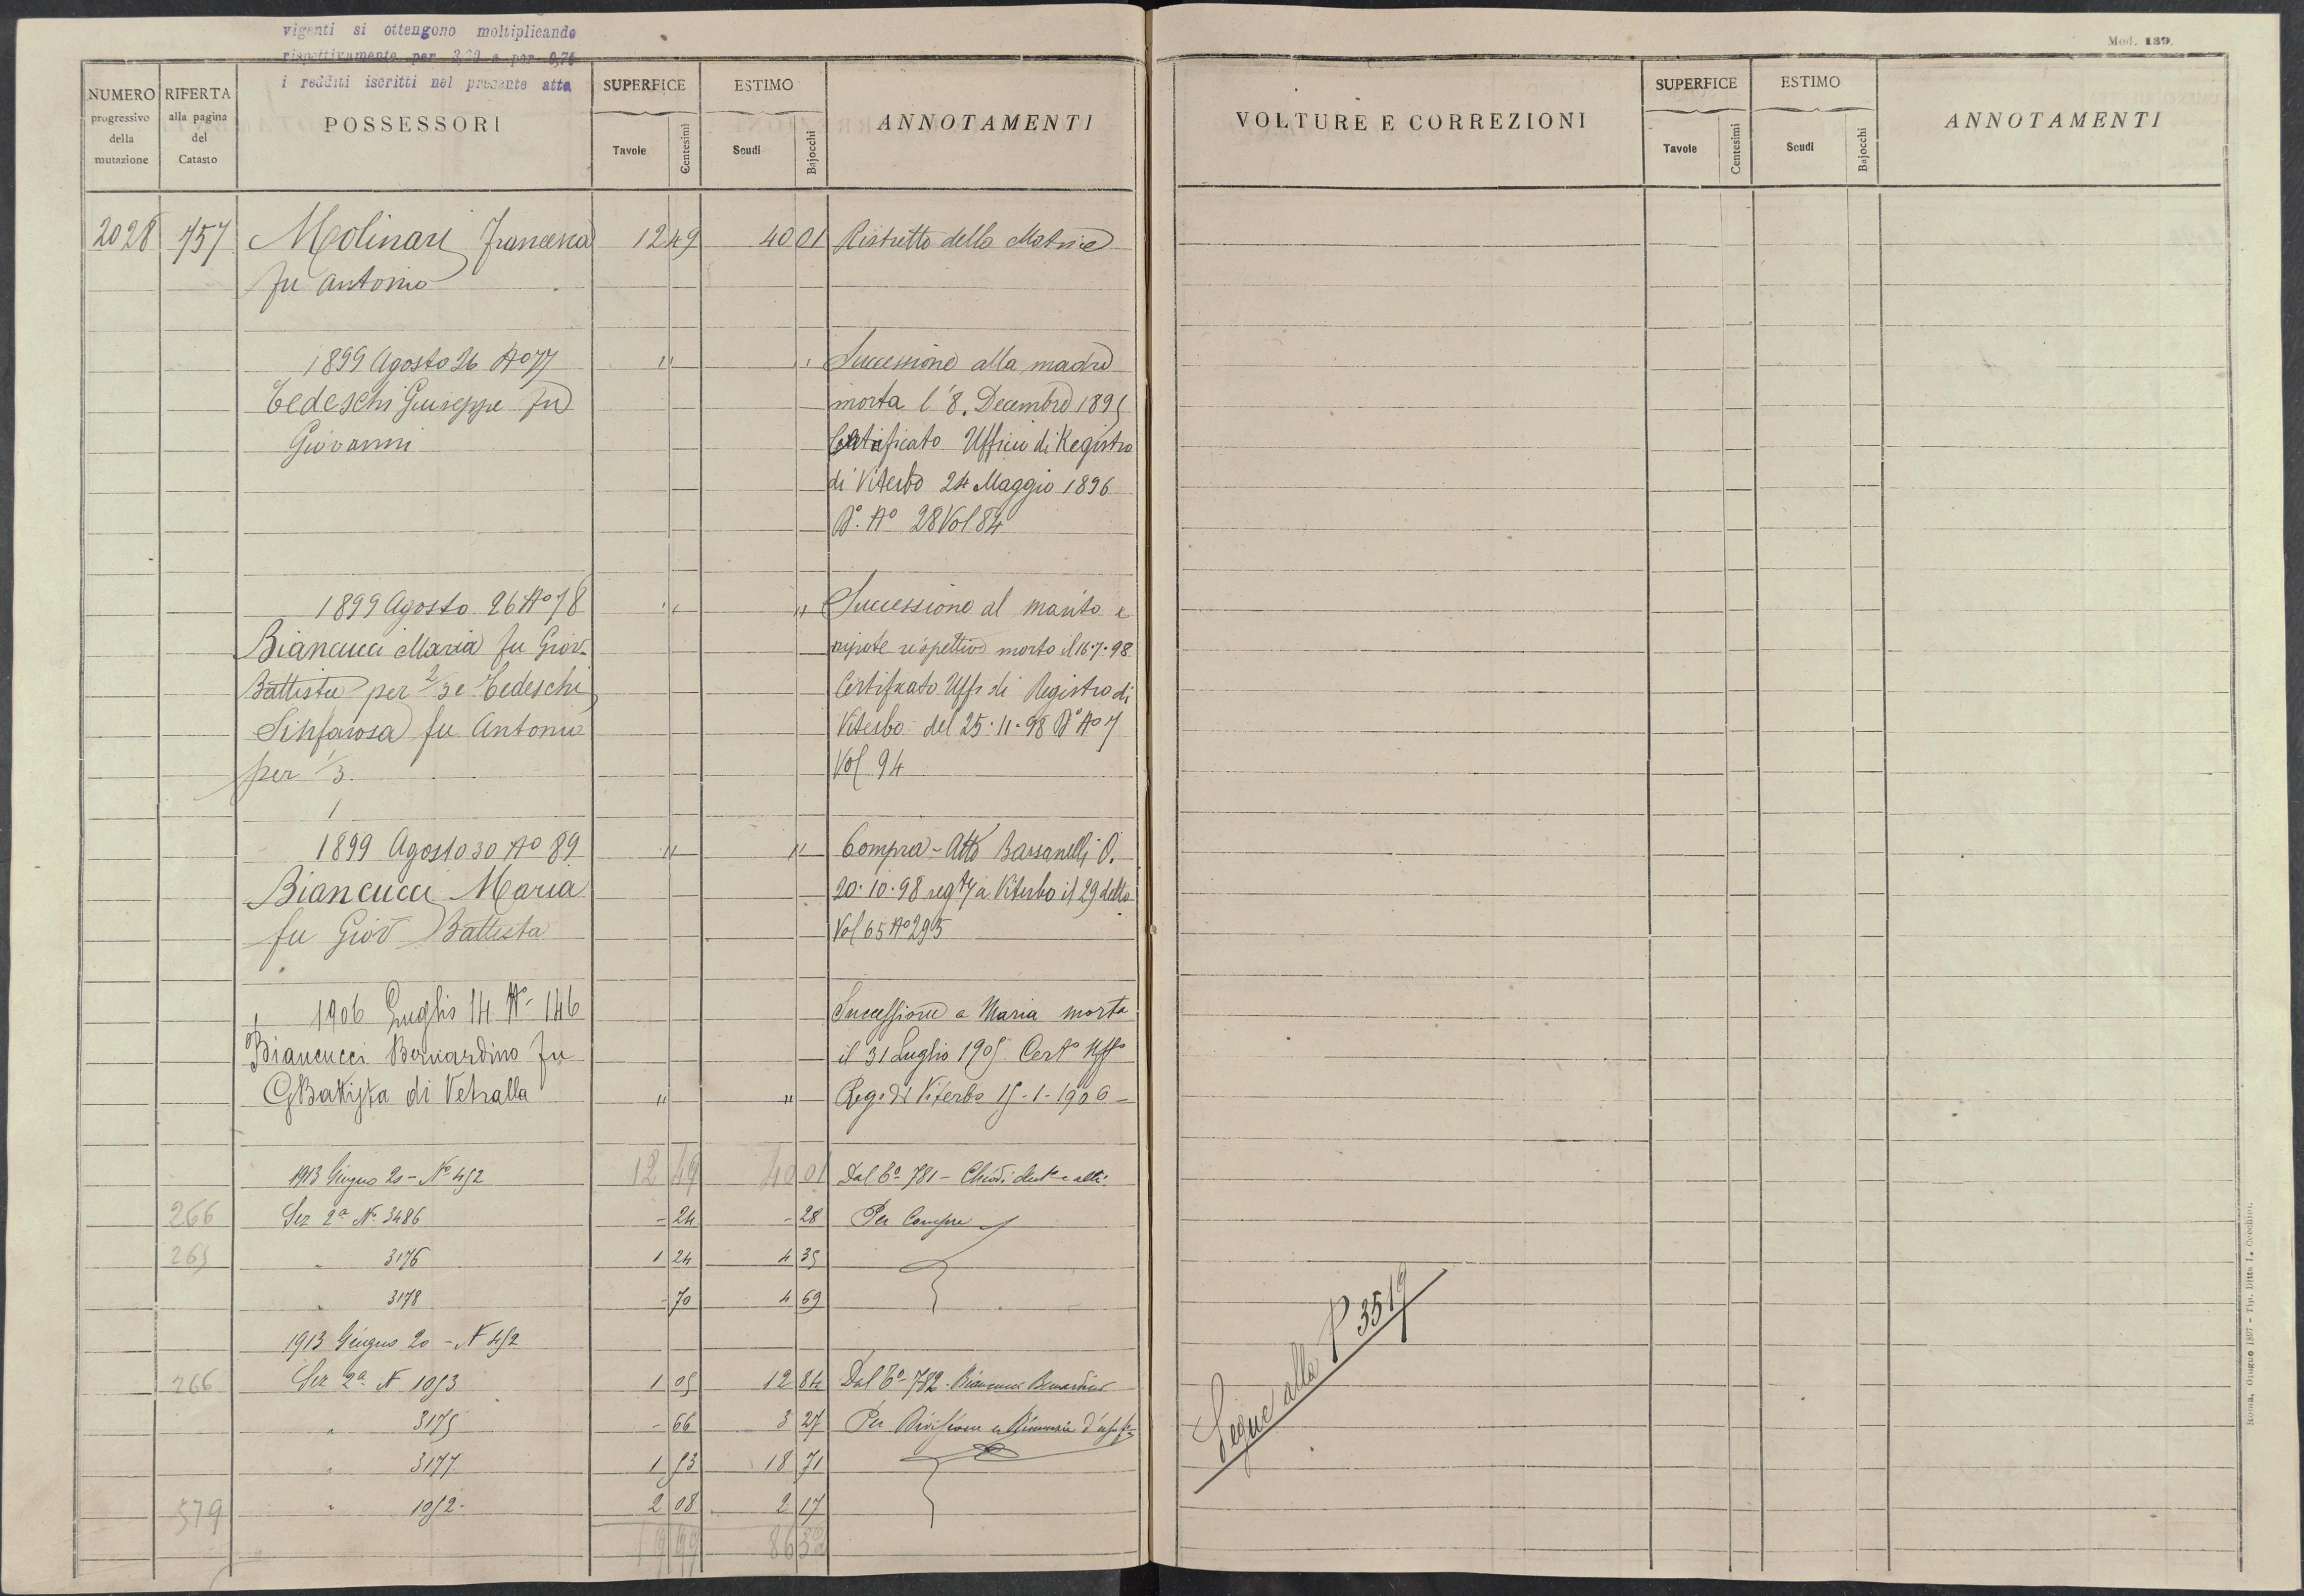 vigenti si ottengono moltiplicando
rispettivamente per 3,20 e per 0,76
i redditi iscritti nel presente atto
NUMERO progressivo della mutazione
RIFERTA alla pagina del Catasto
POSSESSORI
SUPERFICE
Tavole Centesimi
ESTIMO
Scudi Bajocchi
ANNOTAMENTI
2028 757 Molinari Francesca 12 49 40 01 Ristretto della Matrice
fu Antonio
1899 Agosto 26 No 77 " " Successione alla madre
Tedeschi Giuseppe fu morta l'8. Decembre 1895
Giovanni Certificato Ufficio di Registro
di Viterbo 24 Maggio 1896
No 28 Vol 84
1899 Agosto 26 No 78 " " Successione al marito e
Biancucci Maria fu Giov. nipote rispettivo morto il 16.7.98
Battista per 2/3 e Tedeschi Certificato Uff di Registro di
Sinfarosa fu Antonio Viterbo del 25.11.98 No 7
per 1/3. Vol 94
1899 Agosto 30 No 89 " " Compra - Atto Bassanelli O.
Biancucci Maria 20.10.98 a Viterbo il 29 detto
fu Giov Battista Vol 65 No 295
1906 Luglio 14 N- 146 Successione a Maria morta
Biancucci Bernardino fu il 31 Luglio 1905 Certo Uffo
GBattista di Vetralla " " Rego di Viterbo 15-1-1906
1913 Giugno 20 - No 452 12 49 40 01 Dal Co 781 - Chiodi e altri
266 Sez 2a No 3486 - 24 - 28 Per Compra
265 " 3176 1 24 4 35
" 3178 - 70 4 69
1913 Giugno 20 - N 452
266 Sez 2a N 1053 1 05 12 84 Dal Co 782. Biancucci Bernardino
" 3175 - 66 3 27 Per Divisione e
" 3177 1 53 18 71
579 " 1052. 2 08 2 17
19 99 86 32
Mod. 139.
VOLTURE E CORREZIONI
SUPERFICE
Tavole Centesimi
ESTIMO
Scudi Bajocchi
ANNOTAMENTI
Segue alla P 3519
Roma, Giugno 1897 - Tip. Ditta L. Cecchini.